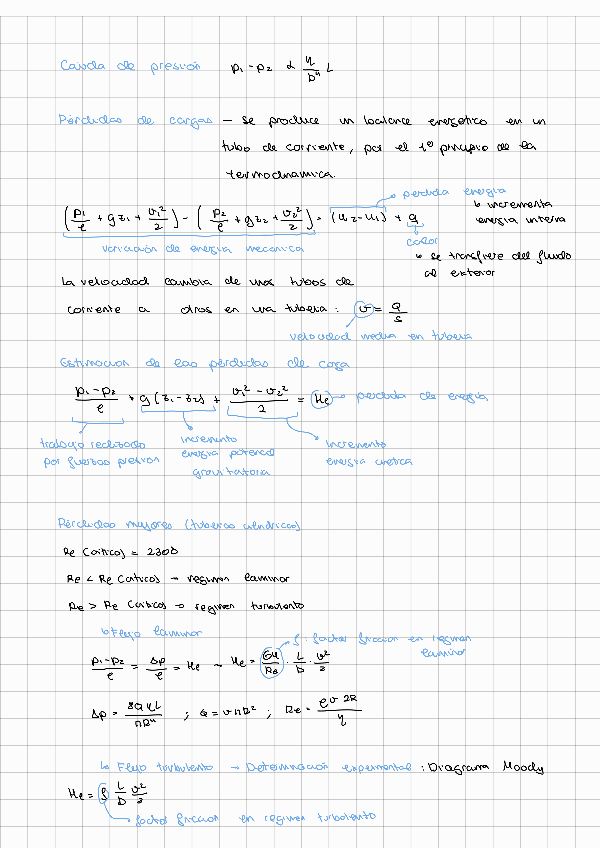 Caída de presión p₁ - p₂ α η/D⁴ L
Pérdidas de cargas – Se produce un balance energético en un
tubo de corriente, por el 1º principio de la
termodinamica.
→ perdida energia
↳ incrementa
energia interna
(p₁/ρ + gz₁ + v₁²/2) - (p₂/ρ + gz₂ + v₂²/2) = (u₂-u₁) + q
variación de energia mecanica
calor
↳ se transfiere del fluido
al exterior
La velocidad cambia de unos tubos de
corriente a otros en una tuberia: v = Q/S
velocidad media en tuberia
Estimacion de las pérdidas de carga
(p₁-p₂)/ρ + g(z₁-z₂) + (v₁²-v₂²)/2 = He → perdida de energia
trabajo realizado
por fuerzas presion
incremento
energia potencial
gravitatoria
incremento
energia cinetica
Pérdidas mayores (tuberias cilindricas)
Re (critico) = 2300
Re < Re (critico) → regimen laminar
Re > Re (critico) → regimen turbulento
↳ Flujo laminar
f: factor friccion en regimen
laminar
(p₁-p₂)/ρ = Δp/ρ = He → He = 64/Re · L/D · v²/2
Δp = 8QηL/πR⁴ ; Q = vπR² ; Re = ρv2R/η
↳ Flujo turbulento → Determinación experimental: Diagrama Moody
He = f L/D v²/2
factor friccion en regimen turbulento